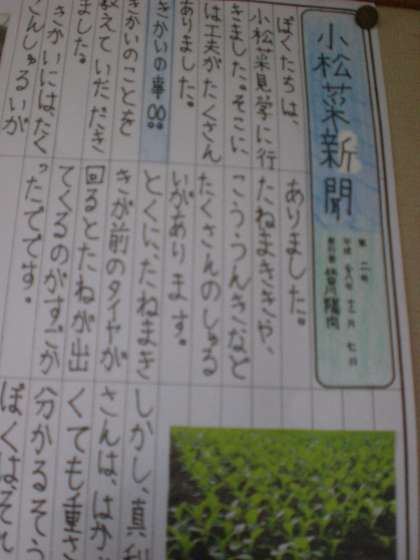 小松菜新聞
第二号
平成廿八年十二月七日
発行者
ぼくたちは、
小松菜見学に行
きました。そこに
は工夫がたくさん
ありました。
きかいの事
きかいのことを
教えていただき
ました。
きかいには、たく
さんしゅるいが
ありました。
たねまききや、
こううんきなど
たくさんのしゅる
いがあります。
とくに、たねまき
きが前のタイヤが
回るとたねが出
てくるのがすごか
ったでです。
しかし、真利
さんは、はか
くても重さ
分かるそう
ぼくはそれ